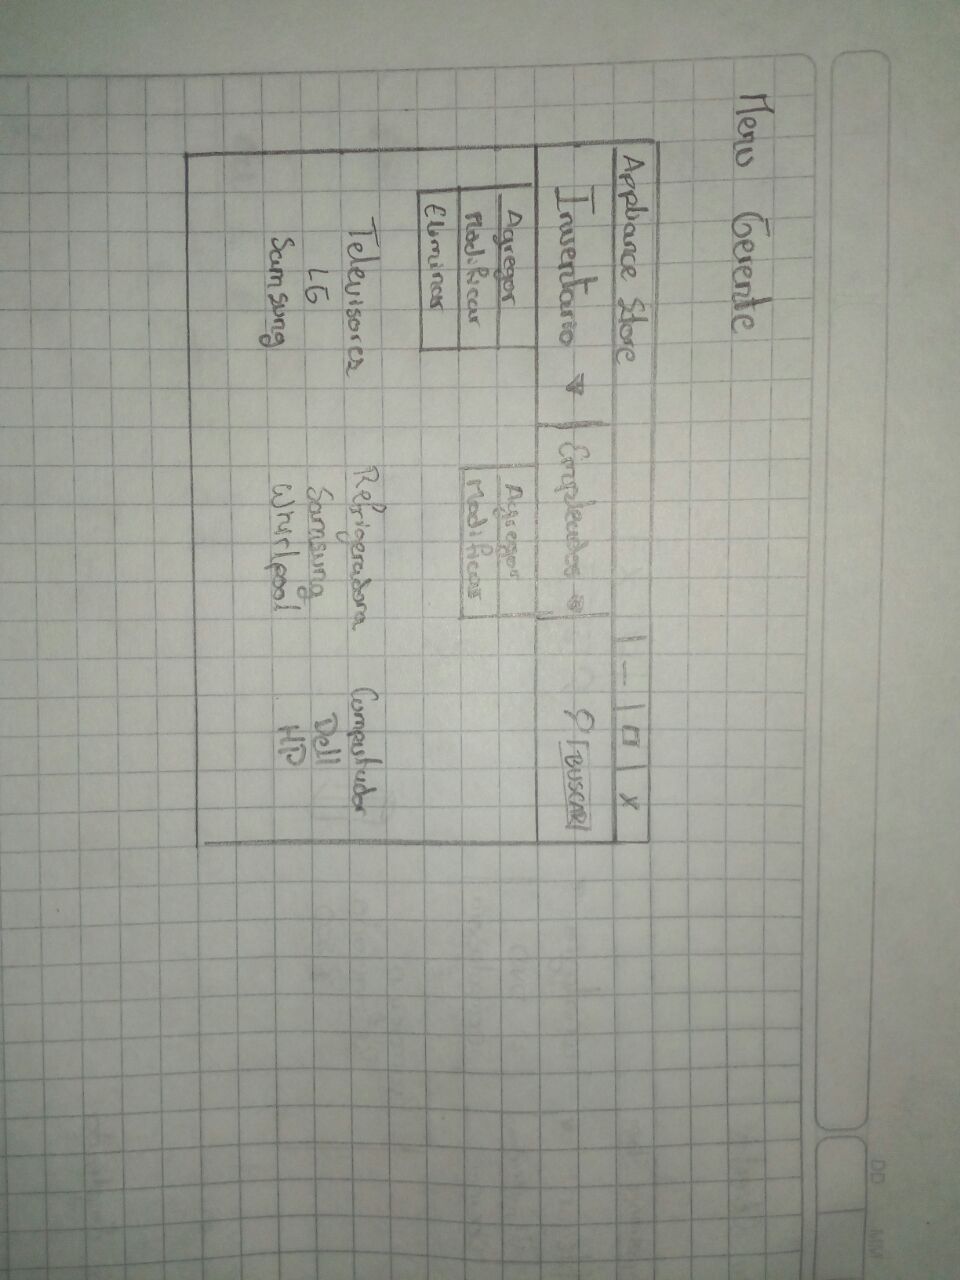 Menu Gerente
Appliance Store | — | □ | X
Inventario ▾ | Empleados ▾ | BUSCAR
Agregar
Modificar
Eliminar
Agregar
Modificar
Televisores
LG
Samsung
Refrigeradora
Samsung
Whirlpool
Computador
Dell
HP
DD
MM